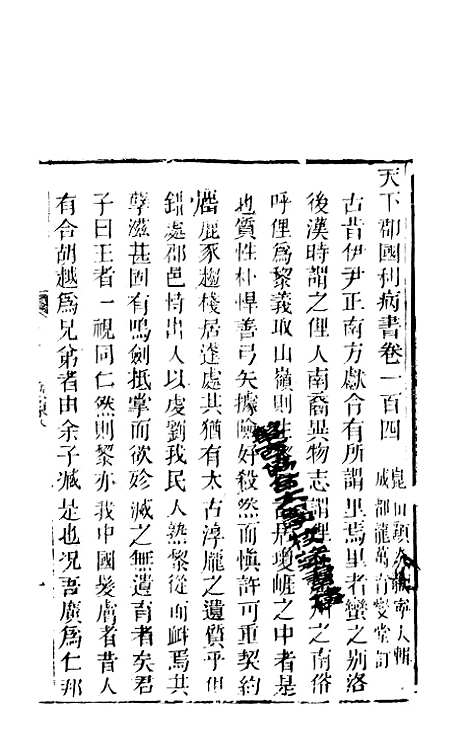 天下郡國利病書卷一百四
崑山顧炎武寧人輯
成都龍萬育燮堂訂
古昔伊尹正南方獻令有所謂里焉里者蠻之别落
後漢時謂之俚人南裔異物志謂俚之南俗
呼俚爲黎義取山嶺則生瓊崖之中者是
也質性朴悍善弓矢據險好殺然而愼許可重契約
居鹿豕趨棧居達處其猶有太古淳龐之遺質乎但
錯處郡邑恃出人以虔劉我民人熟黎從而衅焉其
孳滋甚固有嗚劍抵掌而欲殄滅之無遺育者矣君
子曰王者一視同仁然則黎亦我中國髮膚者昔人
有合胡越爲兄弟者由余子臧是也况吾廣爲仁邦